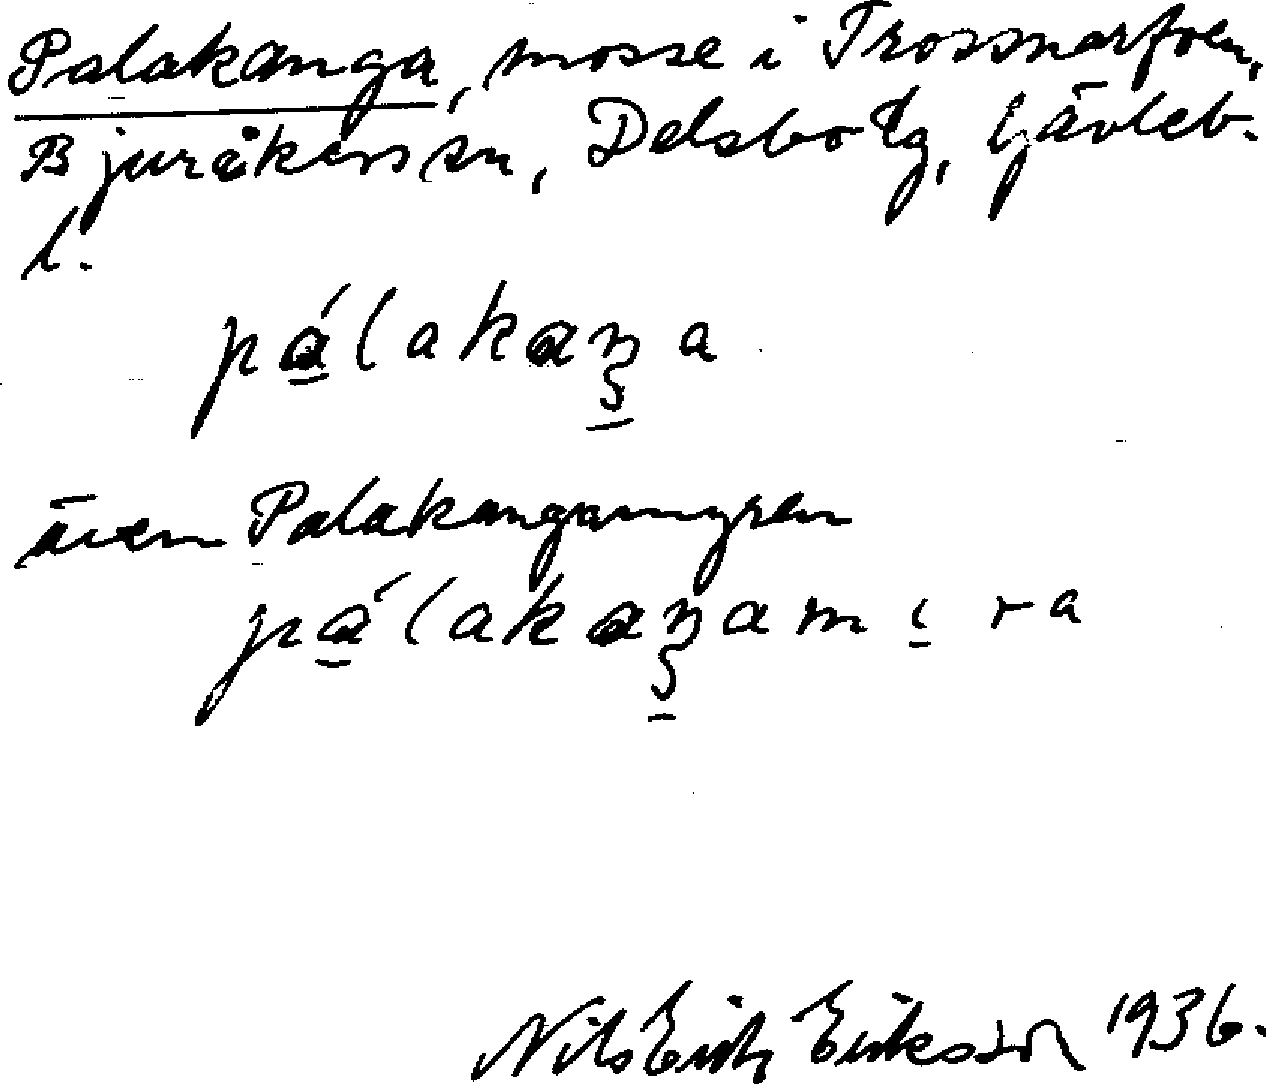 Palakanga, mosse i Trossnarfoen,
Bjuråkers sn, Delsbo tg, Gävleb.
l.
pálakaŋa
även Palakangamyren
pálakaŋamıra
Nils Erik Eriksson 1936.